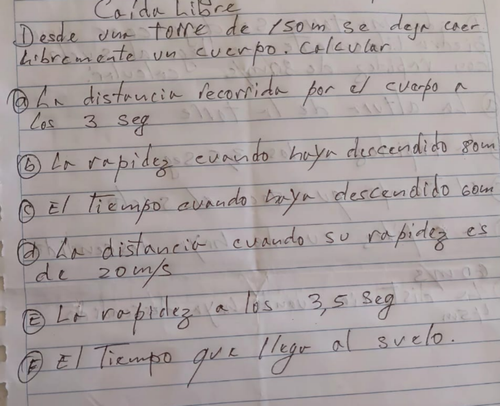 Caida Libre
Desde una torre de 150m se deja caer
hibremente un cuerpo. Calcular
ⓐ La distancia recorrida por el cuerpo a
los 3 seg
ⓑ La rapidez cuando haya descendido 80m
ⓒ El Tiempo cuando haya descendido 60m
ⓓ La distancia cuando su rapidez es
de 20 m/s
Ⓔ La rapidez a los 3,5 seg
Ⓕ El Tiempo que llega al suelo.